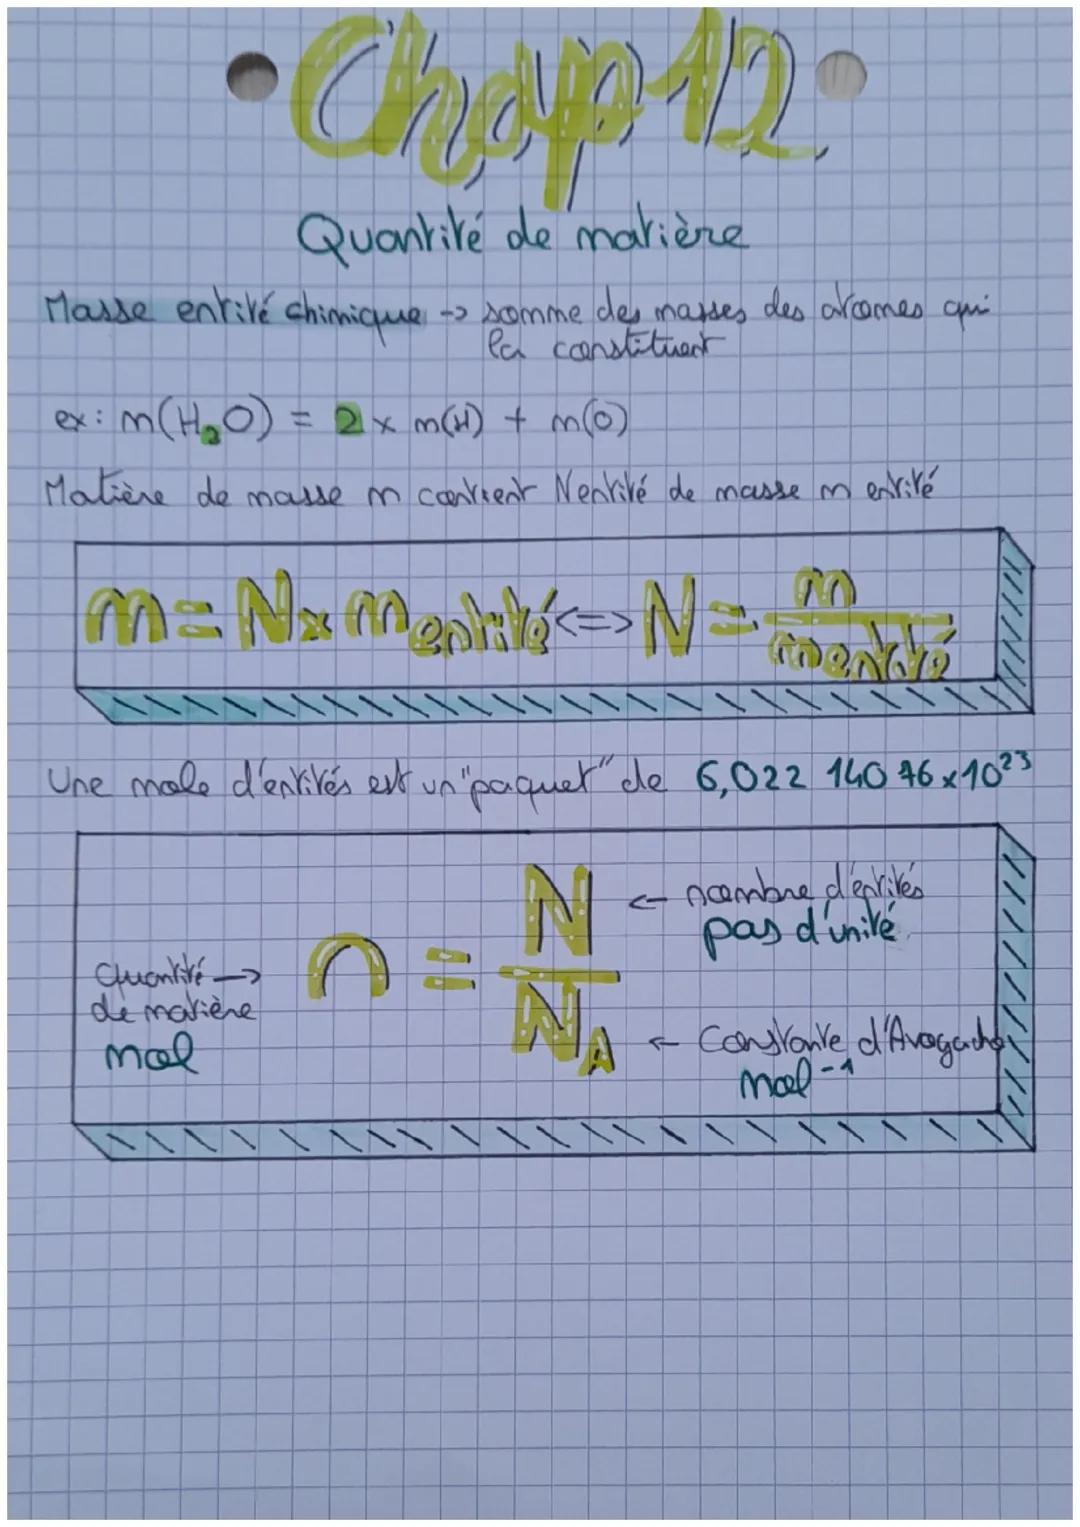 Chap 12
Quantité de matière
Masse entité chimique -> somme des masses des atomes qui
la constituent
ex: m(H₂O) = 2 x m(H) + m(O)
Matière de masse m contient N entité de masse m entité
m = N x m entité <=> N = m / m entité
Une mole d'entités est un "paquet" de 6,022 140 76 x 10²³
Quantité ->
de matière
mol
n = N / N_A
<- nombre d'entités
pas d'unité
<- Constante d'Avogadro
mol⁻¹